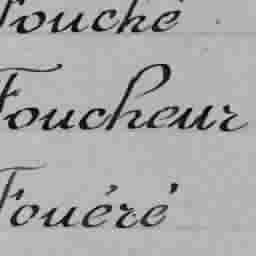 Fouché
Foucheur
Fouéré